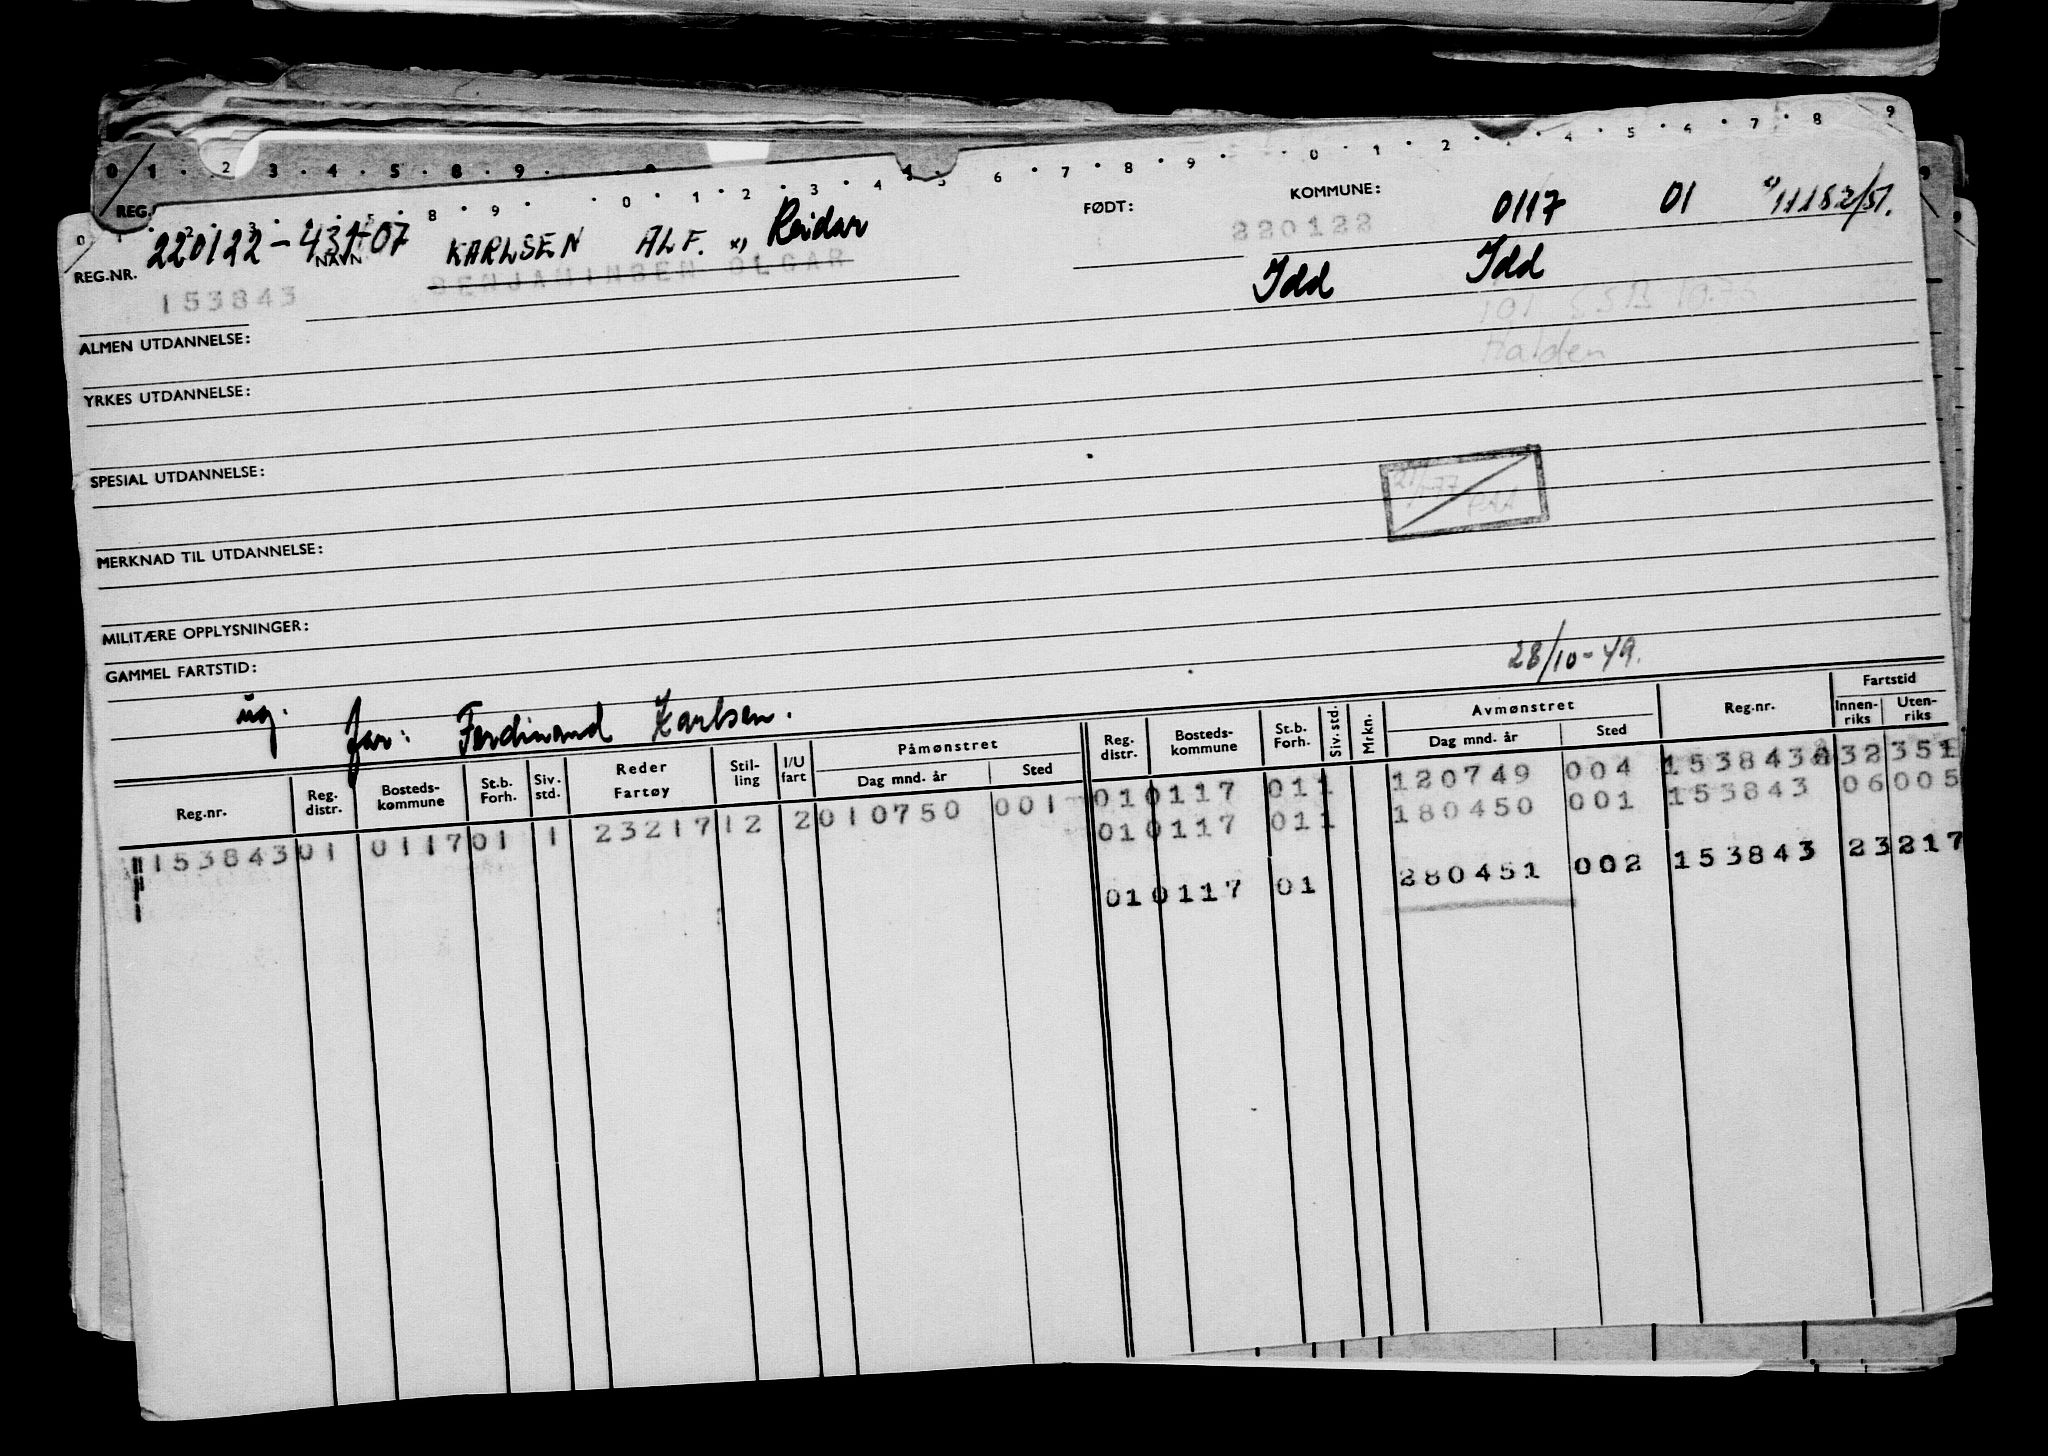 0 1 . 2 3 . 4 . 5 . 8 . 9 .
6 . 7 . 8 . 9 . 0 . 1 . 2 . 4 . 5 . 6 . 7 . 8 9
8 . 9 . 0 . 1 . 2 . 3 . 4 . 5
REG.
FØDT: KOMMUNE:
0117 01 x) 11182/51.
REG.NR. 220122-431-07 NAVN KARLSEN ALF. x) Reidar
220122
153843 BENJAMINSEN OLGAR
Idd Idd
Halden
ALMEN UTDANNELSE:
YRKES UTDANNELSE:
SPESIAL UTDANNELSE:
MERKNAD TIL UTDANNELSE:
MILITÆRE OPPLYSNINGER:
GAMMEL FARTSTID:
28/10-49.
ug. far: Ferdinand Karlsen.
Reg.nr. Reg. distr. Bosteds-kommune St.b. Forh. Siv. std. Reder Fartøy Stil-ling I/U fart Påmønstret Dag mnd. år Sted Reg. distr. Bosteds-kommune St.b. Forh. Siv. std. Mrkn. Avmønstret Dag mnd. år Sted Reg.nr. Fartstid Innen-riks Uten-riks
01 0117 01 1 120749 004 153843 32351
153843 01 0117 01 1 23217 12 2 010750 001 01 0117 01 1 180450 001 153843 06005
01 0117 01 280451 002 153843 23217